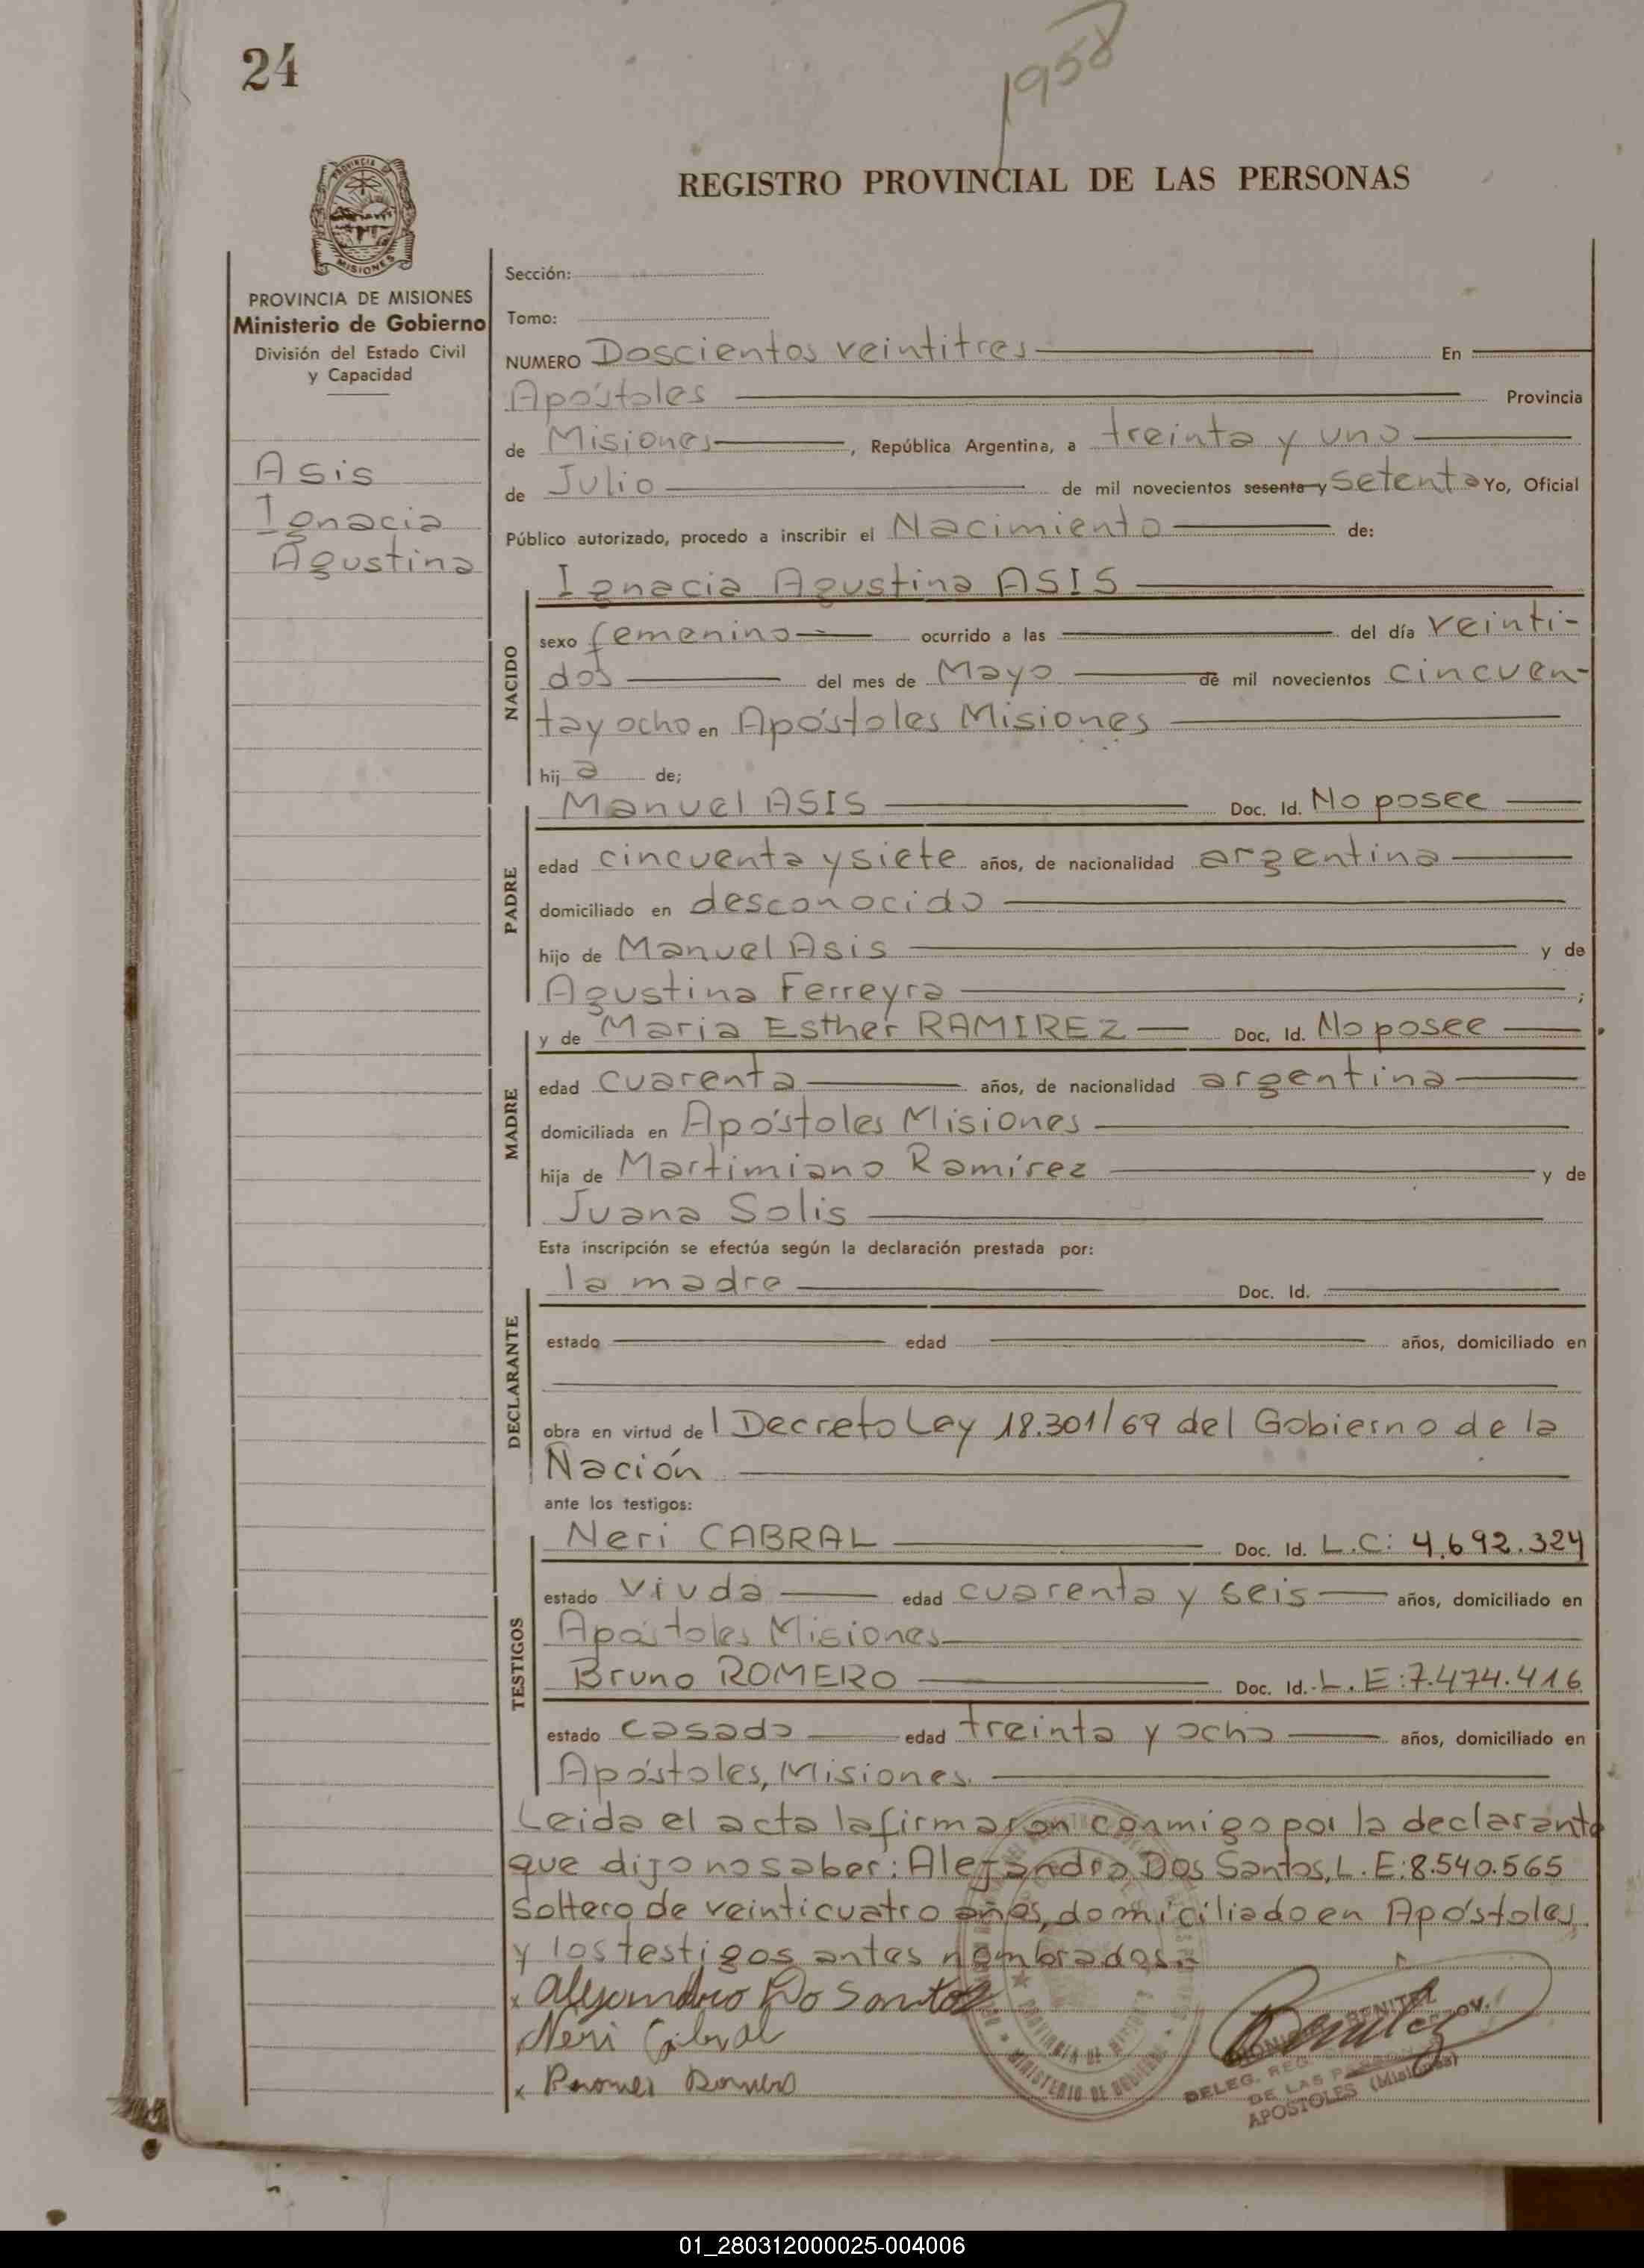 24
1958
REGISTRO PROVINCIAL DE LAS PERSONAS
PROVINCIA DE
MISIONES
PROVINCIA DE MISIONES
Ministerio de Gobierno
División del Estado Civil
y Capacidad
Asis
Ignacia
Agustina
Sección:
Tomo:
NUMERO Doscientos veintitres En
Apóstoles Provincia
de Misiones, República Argentina, a treinta y uno
de Julio de mil novecientos sesenta y setenta Yo, Oficial
Público autorizado, procedo a inscribir el Nacimiento de:
Ignacia Agustina ASIS
NACIDO
sexo femenino ocurrido a las del día veinti-
dos del mes de Mayo de mil novecientos cincuen-
ta y ocho en Apóstoles Misiones
hij a de;
PADRE
Manuel ASIS Doc. Id. No posee
edad cincuenta y siete años, de nacionalidad argentina
domiciliado en desconocido
hijo de Manuel Asis y de
Agustina Ferreyra ;
MADRE
y de Maria Esther RAMIREZ Doc. Id. No posee
edad cuarenta años, de nacionalidad argentina
domiciliada en Apóstoles Misiones
hija de Martimiano Ramírez y de
Juana Solis
Esta inscripción se efectúa según la declaración prestada por:
DECLARANTE
la madre Doc. Id.
estado edad años, domiciliado en
obra en virtud de l Decreto Ley 18.301/69 del Gobierno de la
Nación
ante los testigos:
TESTIGOS
Neri CABRAL Doc. Id. L.C: 4.692.324
estado viuda edad cuarenta y seis años, domiciliado en
Apóstoles Misiones
Bruno ROMERO Doc. Id. L.E:7.474.416
estado casado edad treinta y ocho años, domiciliado en
Apóstoles, Misiones.
Leida el acta la firmaron conmigo por la declarante
que dijo no saber: Alejandro Dos Santos, L.E:8.540.565
soltero de veinticuatro años, domiciliado en Apóstoles
y los testigos antes nombrados.-
x Alejandro Do Santos
Neri Cabral
x Romero
BENITEZ
DELEG. REG. PROV.
DE LAS PERSONAS
APOSTOLES (Misiones)
PROVINCIA DE MISIONES
MINISTERIO DE GOBIERNO
01_280312000025-004006